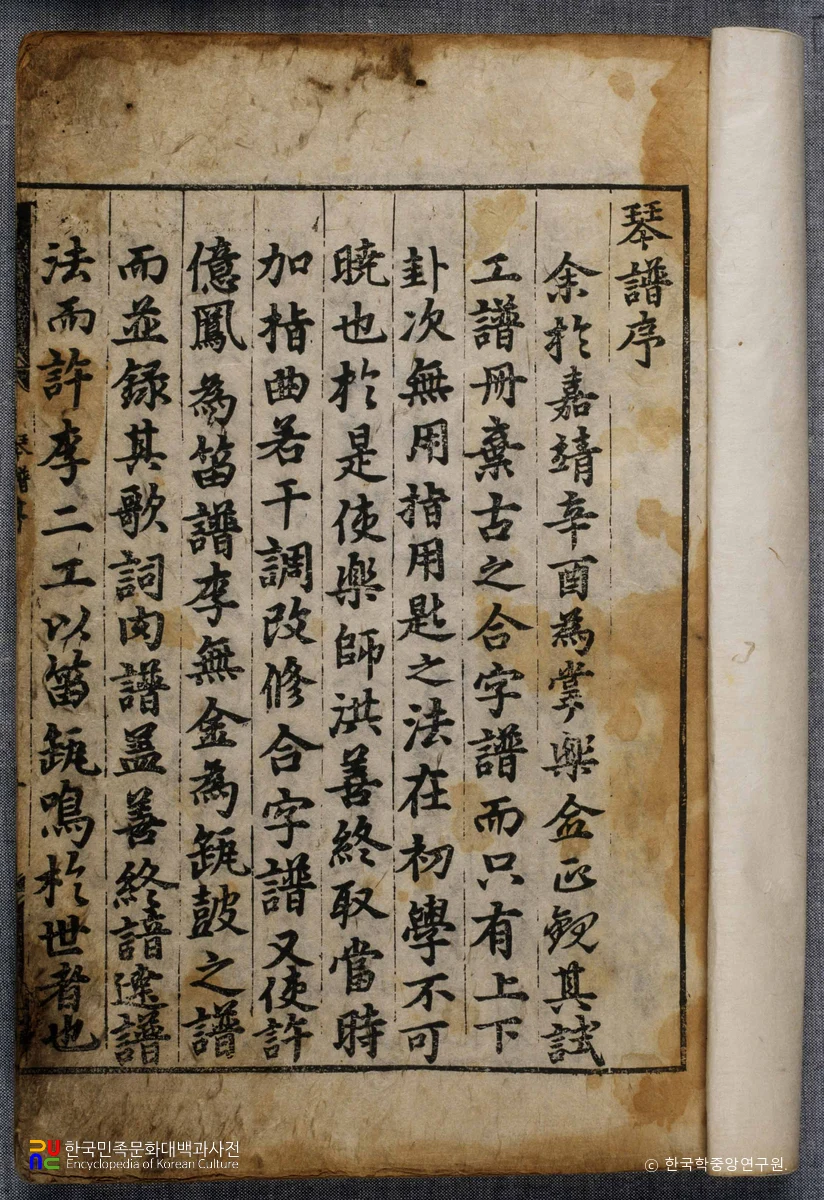 琴譜序
余於嘉靖辛酉為掌樂僉正觀其試
工譜冊棄古之合字譜而只有上下
卦次無用指用匙之法在初學不可
曉也於是使樂師洪善終取當時
加指曲若干調改修合字譜又使許
億鳳為笛譜李無金為缻皷之譜
而並録其歌詞肉譜盖善終諳達譜
法而許李二工以笛缻鳴於世者也
한국민족문화대백과사전
Encyclopedia of Korean Culture
© 한국학중앙연구원.